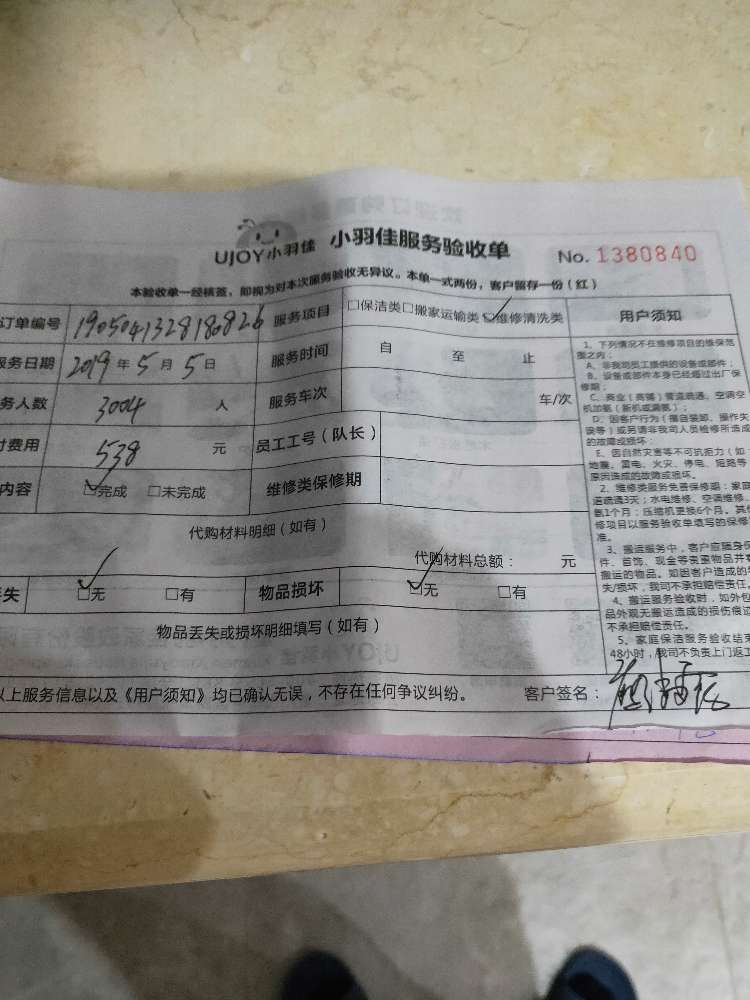 UJOY小羽佳 小羽佳服务验收单 No. 1380840
本验收单一经核签，即视为对本次服务验收无异议。本单一式两份，客户留存一份（红）
订单编号 1905041328180826 服务项目 □保洁类□搬家运输类☑维修清洗类 用户须知
服务日期 2019年5月5日 服务时间 自 至 止
务人数 3004 人 服务车次 车/次
付费用 538 元 员工工号（队长）
内容 ☑完成 □未完成 维修类保修期
代购材料明细（如有）
代购材料总额： 元
丢失 ☑无 □有 物品损坏 ☑无 □有
物品丢失或损坏明细填写（如有）
以上服务信息以及《用户须知》均已确认无误，不存在任何争议纠纷。 客户签名：
1、下列情况不在维修项目的维保范
围之内：
A、非我司员工提供的设备或部件；
B、设备或部件本身已经超过出厂保
修期；
C、商业（商铺）管道疏通、空调空
机加氨（新机或漏氨）；
D、因客户行为（擅自装卸、操作失
误等）或另请非我司人员检修所造成
的故障或损坏；
E、因自然灾害等不可抗拒力（如
地震、雷电、火灾、停电、短路等
原因造成的故障或损坏。
2、维修类服务免善保修期：家庭
道疏通3天；水电维修、空调维修、
氨1个月；压缩机更换6个月。其他
修项目以服务验收单填写的保修
准。
3、搬运服务中，客户应随身保
件、首饰、现金等贵重物品并
搬运的物品。如因客户造成的
失/损坏，我司不承担赔偿责任。
4、搬运服务验收时，如外包
品外观无搬运造成的损伤痕迹
不承担赔偿责任。
5、家庭保洁服务验收结束
48小时，我司不负责上门返工